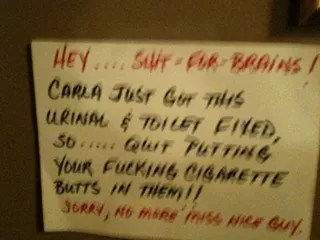 HEY.... SHIT-FOR-BRAINS!
CARLA JUST GOT THIS
URINAL & TOILET FIXED,
SO..... QUIT PUTTING
YOUR FUCKING CIGARETTE
BUTTS IN THEM!!
SORRY, NO MORE "MISS NICE GUY.